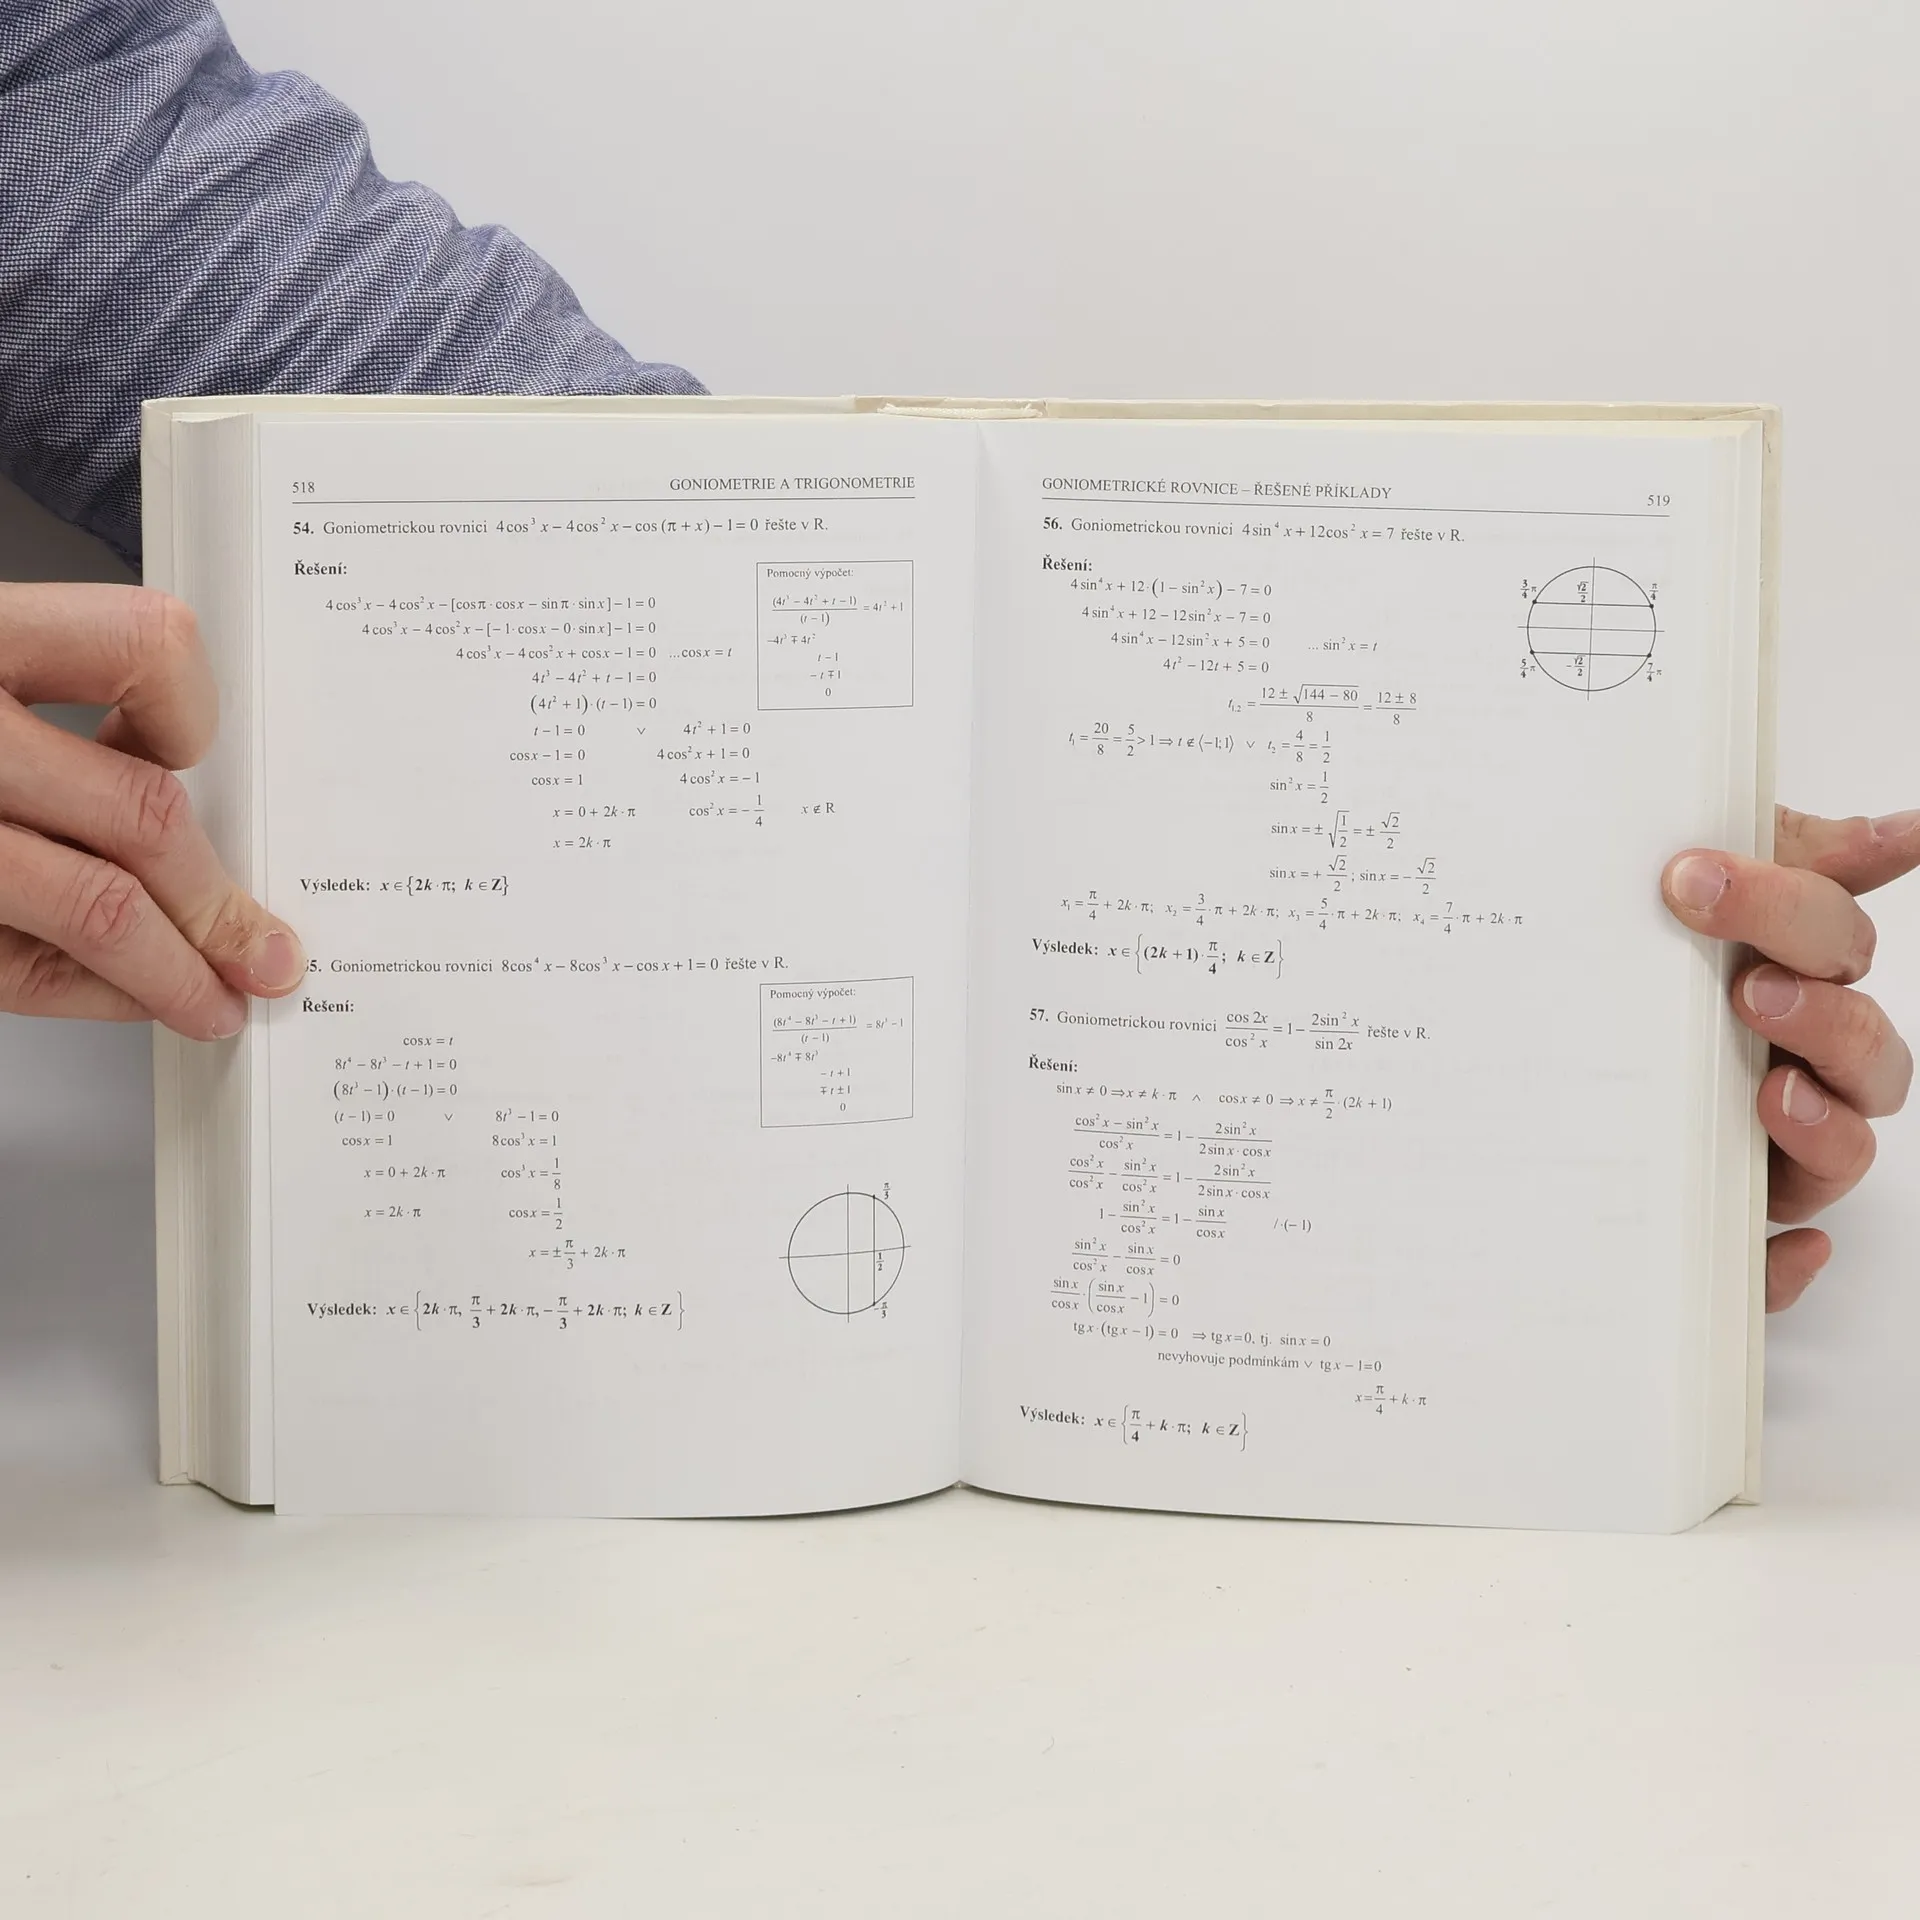 518 GONIOMETRIE A TRIGONOMETRIE
54. Goniometrickou rovnici 4cos³ x – 4cos² x – cos (π + x) – 1 = 0 řešte v R.
Řešení:
4 cos³ x – 4 cos² x – [cosπ · cosx – sin π · sin x] – 1 = 0
4 cos³ x – 4 cos² x – [– 1 · cosx – 0 · sin x] – 1 = 0
4 cos³ x – 4 cos² x + cosx – 1 = 0 ...cos x = t
4t³ – 4t² + t – 1 = 0
(4t² + 1) · (t – 1) = 0
t – 1 = 0 ∨ 4t² + 1 = 0
cosx – 1 = 0 4 cos² x + 1 = 0
cosx = 1 4 cos² x = – 1
x = 0 + 2k · π cos² x = – 1/4 x ∉ R
x = 2k · π
Pomocný výpočet:
(4t³ – 4t² + t – 1)/(t – 1) = 4t² + 1
–4t³ ∓ 4t²
t – 1
– t ∓ 1
0
Výsledek: x ∈ {2k · π; k ∈ Z}
5. Goniometrickou rovnici 8cos⁴ x – 8cos³ x – cos x + 1 = 0 řešte v R.
Řešení:
cosx = t
8t⁴ – 8t³ – t + 1 = 0
(8t³ – 1) · (t – 1) = 0
(t – 1) = 0 ∨ 8t³ – 1 = 0
cosx = 1 8 cos³ x = 1
x = 0 + 2k · π cos³ x = 1/8
x = 2k · π cosx = 1/2
x = ± π/3 + 2k · π
Pomocný výpočet:
(8t⁴ – 8t³ – t + 1)/(t – 1) = 8t³ – 1
–8t⁴ ∓ 8t³
– t + 1
∓ t ± 1
0
π/3
1/2
–π/3
Výsledek: x ∈ {2k · π, π/3 + 2k · π, – π/3 + 2k · π; k ∈ Z}
GONIOMETRICKÉ ROVNICE – ŘEŠENÉ PŘÍKLADY 519
56. Goniometrickou rovnici 4sin⁴ x + 12cos² x = 7 řešte v R.
Řešení:
4 sin⁴ x + 12 · (1 – sin² x) – 7 = 0
4 sin⁴ x + 12 – 12 sin² x – 7 = 0
4 sin⁴ x – 12 sin² x + 5 = 0 ... sin² x = t
4t² – 12t + 5 = 0
t₁,₂ = (12 ± √(144 – 80))/8 = (12 ± 8)/8
t₁ = 20/8 = 5/2 > 1 ⇒ t ∉ ⟨–1; 1⟩ ∨ t₂ = 4/8 = 1/2
sin² x = 1/2
sin x = ± √(1/2) = ± √2/2
sin x = + √2/2 ; sin x = – √2/2
x₁ = π/4 + 2k · π; x₂ = 3/4 · π + 2k · π; x₃ = 5/4 · π + 2k · π; x₄ = 7/4 · π + 2k · π
3/4 π √2/2 π/4
5/4 π –√2/2 7/4 π
Výsledek: x ∈ {(2k + 1) · π/4; k ∈ Z}
57. Goniometrickou rovnici cos 2x/cos² x = 1 – 2sin² x/sin 2x řešte v R.
Řešení:
sin x ≠ 0 ⇒ x ≠ k · π ∧ cosx ≠ 0 ⇒ x ≠ π/2 · (2k + 1)
(cos² x – sin² x)/cos² x = 1 – 2 sin² x/(2 sin x · cosx)
cos² x/cos² x – sin² x/cos² x = 1 – 2 sin² x/(2 sin x · cosx)
1 – sin² x/cos² x = 1 – sin x/cosx / · (– 1)
sin² x/cos² x – sin x/cosx = 0
sin x/cosx · (sin x/cosx – 1) = 0
tg x · (tg x – 1) = 0 ⇒ tg x = 0, tj. sin x = 0
nevyhovuje podmínkám ∨ tg x – 1 = 0
x = π/4 + k · π
Výsledek: x ∈ {π/4 + k · π; k ∈ Z}